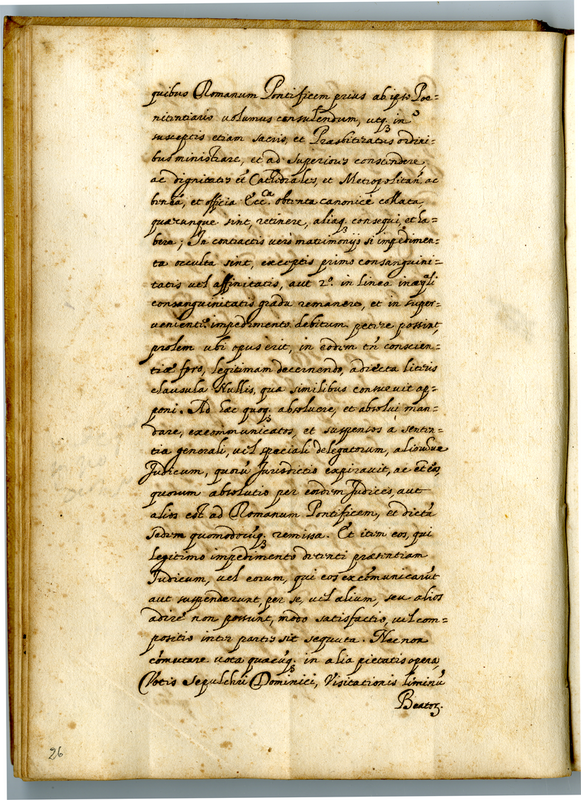 quibus Romanum Pontificem prius ab ipso Poe=
nitentiario volumus consulendum, utq. in
susceptis etiam sacris, et Præsbiteratus ordini=
bus ministrare, et ad superiores conscendere,
ac dignitates et Cathedrales, et Metropolitan. ac
et officia Ecc.ca obtenta canonice collata,
quæcunque sint, retinere, aliaq. consequi, et ha=
bere; In contractis vero matrimonijs si impedimen=
ta occulta sint, exceptis primo consanguini=
tatis vel affinitatis, aut 2.º in linea inæq.li
consanguinitatis gradu remanere, et in super=
venienti impedimento debitum petere possint
prolem ubi opus erit, in eodem tñ conscien=
tiæ foro, legitimam decernendo, adiecta literis
clausula Nullis, qua similibus consuevit ap=
poni. Ad hæc quoq. absolvere, et absolvi man=
dare, excommunicatos, et suspensos a senten=
tia generali, vel speciali delegatorum, aliorumve
Judicum, quorũ Jurisdictio expiravit, ac et eos,
quorum absolutio per eosdem Judices, aut
alios est ad Romanum Pontificem, et dictã
Sedem quomodocũq. remissa. Et item eos, qui
legitimo impedimento detenti præsentiam
Judicum, vel eorum, qui eos excõmunicarũt
aut suspenderunt, per se, vel alium, seu alios
adire non possunt, modo satisfactio, vel com=
positio inter partes sit sequuta. Nec non
cõmutare vota quæcũq. in alia pietatis opera,
Votis Sepulchri Dominici, Visitationis liminũ
Beator.
26